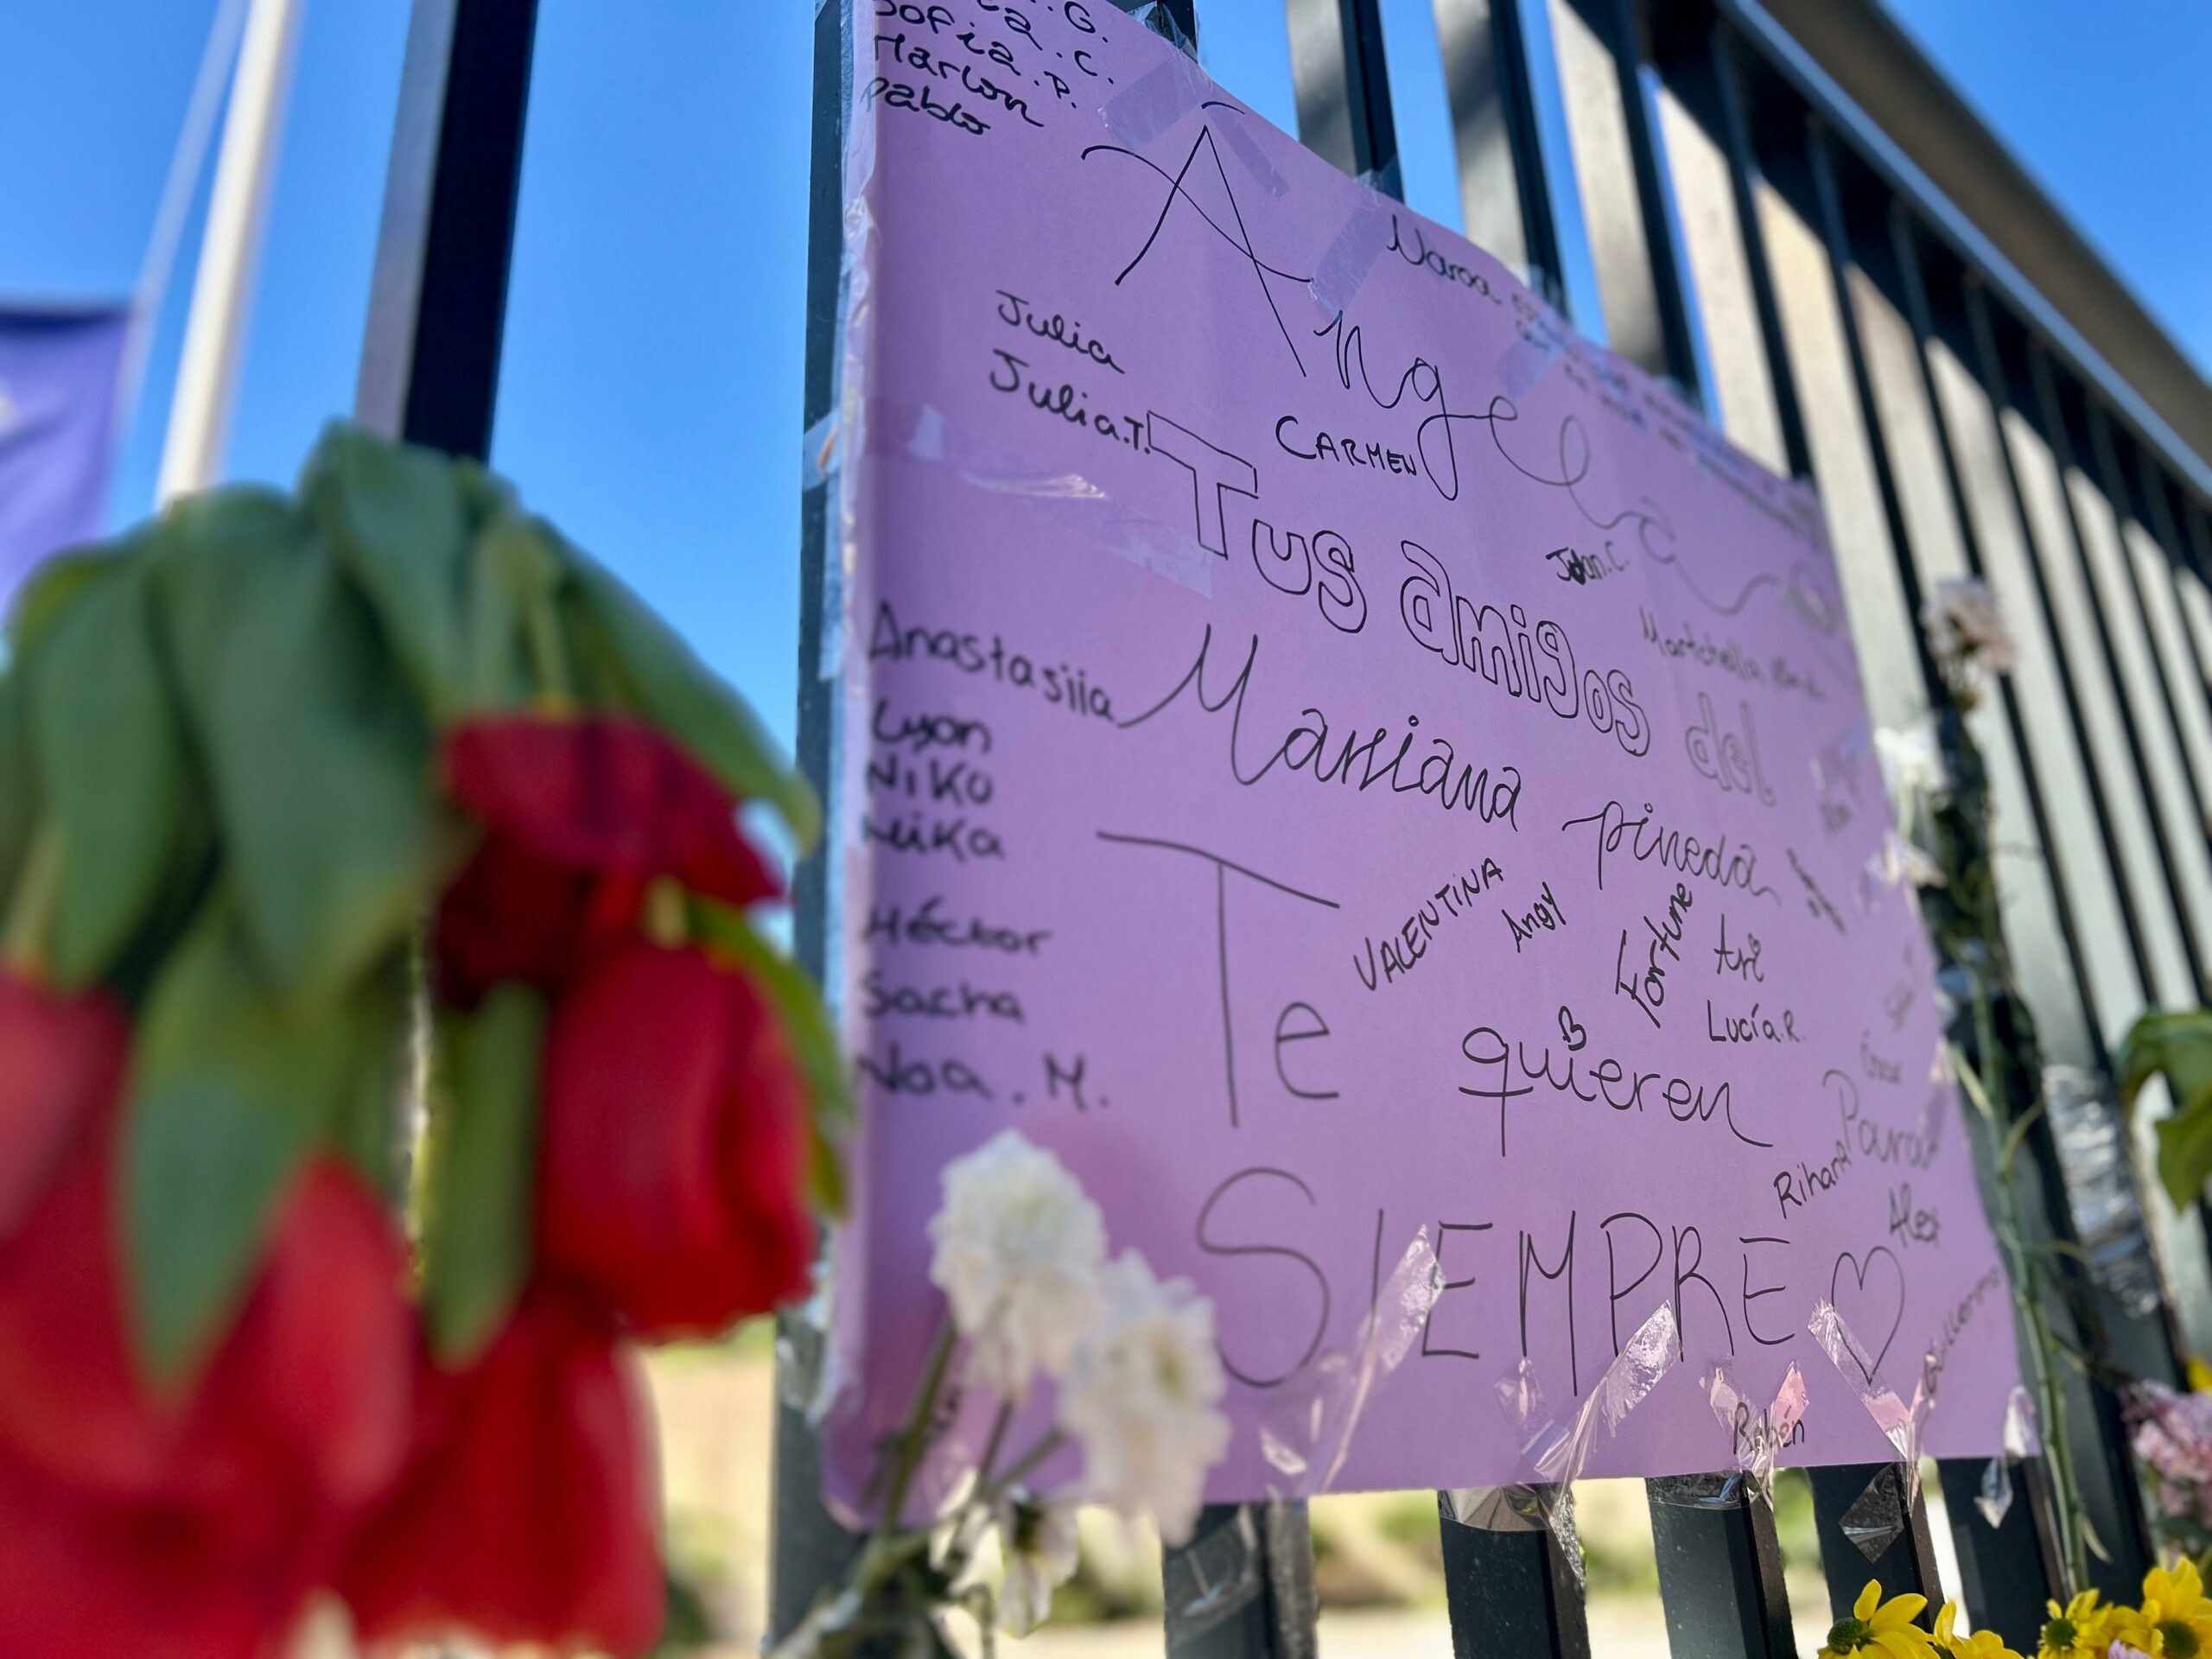 Sofia.C.
Marlon.P.
Pablo
Angela
Naroa
Julia
Julia.T.
CARMEN
Tus amigos del
Anastasiia
Mariana pineda
Lyon
Niko
Nika
VALENTINA
Angy
Fortune
Ari
Lucía.R.
Héctor
Sacha
Noa.M.
Te quieren
B
Rihana
Alex
SIEMPRE
Guillermo
Rubén